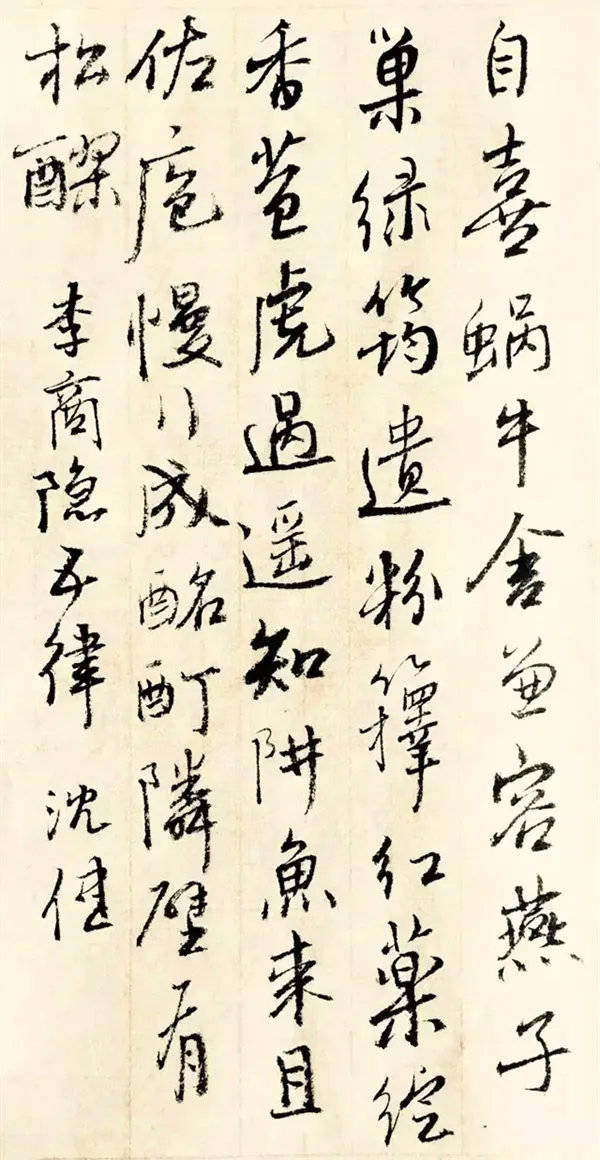 自喜蝸牛舍兼容燕子
巢绿筠遺粉籜红藥綻
香苞虎過遥知阱魚来且
佐庖慢行成酩酊隣壁有
松醪 李商隐五律 沈健